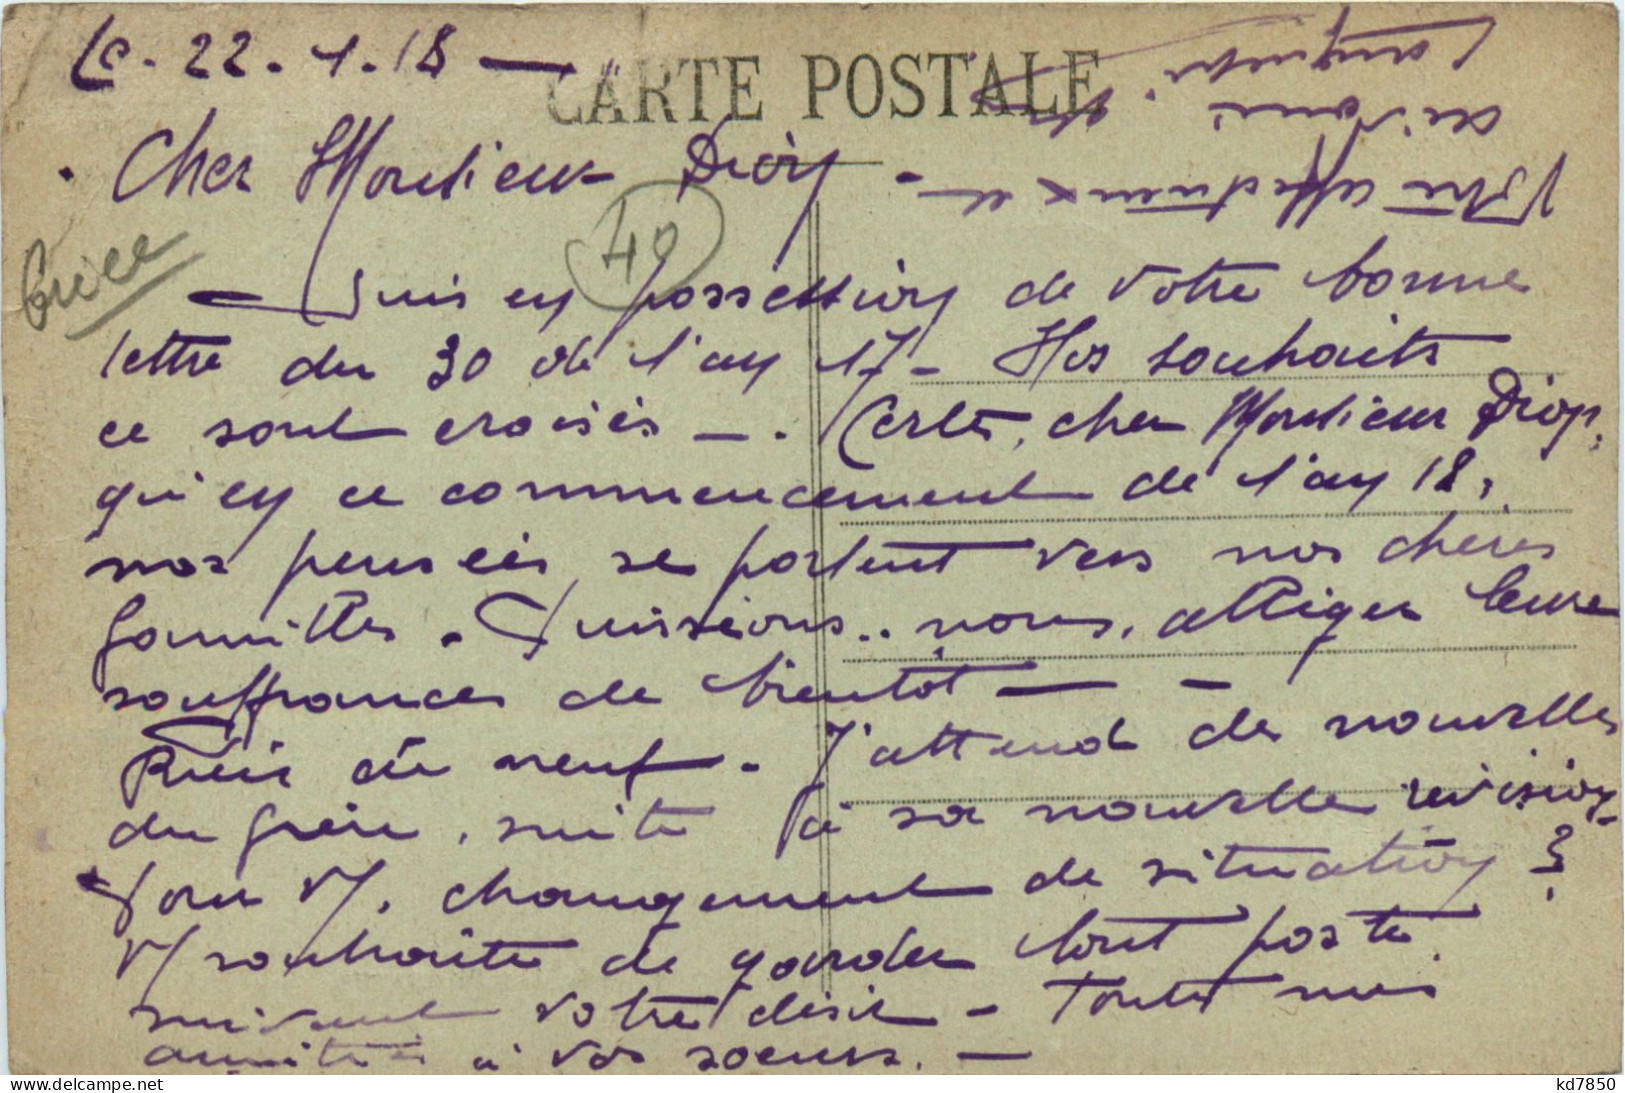 Le. 22.1.18 —
CARTE POSTALE
Cher Monsieur Diop -
40
— Suis en possession de votre bonne
lettre du 30 de l'an 17 - Nos souhaits
ce sont croisés —. Certes, cher Monsieur Diop,
qu'en ce commencement de l'an 18,
nos pensées se portent vers nos chères
familles. Puissions.. nous, alléger leurs
souffrances de bientôt — -
Rien de neuf -. J'attend de nouvelles
du frère, suite à sa nouvelle révision
Pour V/. changement de situation ?
V/ souhaite de garder tout poste
suivant votre désir - Toutes mes
amitiés à vos soeurs. —
Votre affectueux et
ami
www.delcampe.net
kd7850